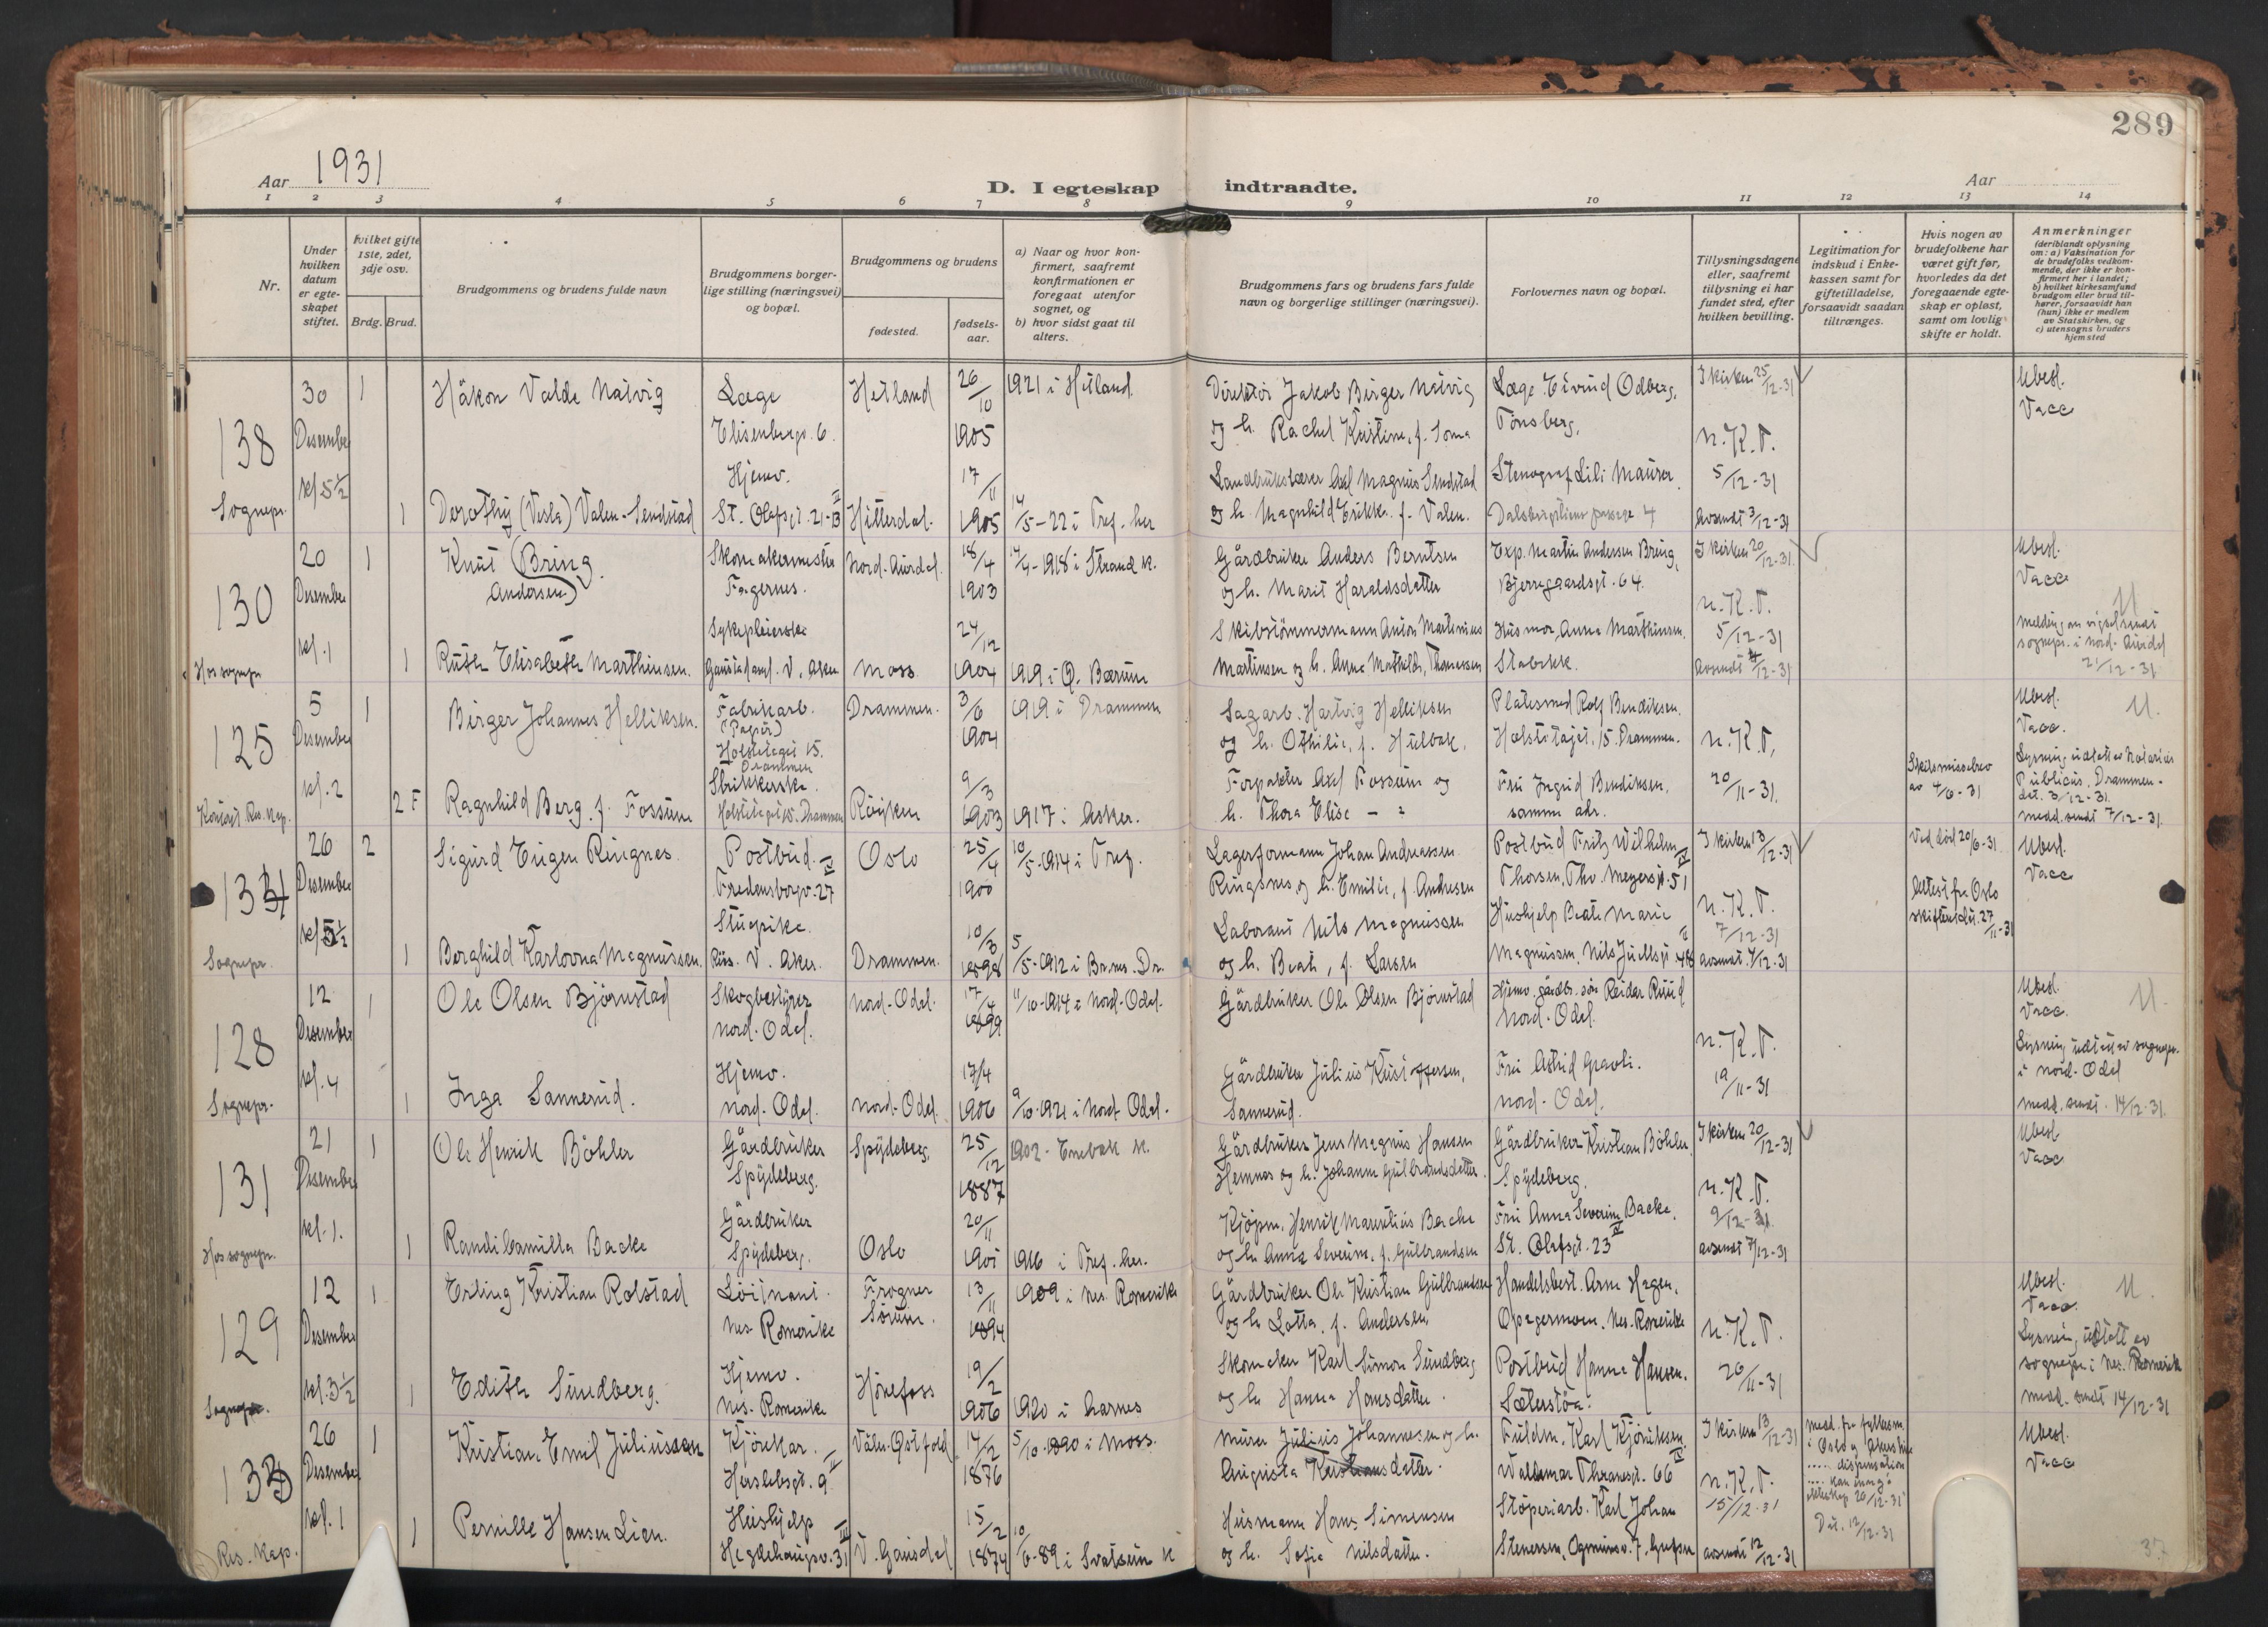 289
Aar 1931
D. I egteskap indtraadte.
Aar
1 2 3 4 5 6 7 8 9 10 11 12 13 14
Nr.
Under hvilken datum er egteskapet stiftet.
hvilket gifte 1ste, 2det, 3dje osv.
Brdg. Brud.
Brudgommens og brudens fulde navn
Brudgommens borgerlige stilling (næringsvei) og bopæl.
Brudgommens og brudens
fødested.
fødselsaar.
a) Naar og hvor konfirmert, saafremt konfirmationen er foregaat utenfor sognet, og
b) hvor sidst gaat til alters.
Brudgommens fars og brudens fars fulde navn og borgerlige stillinger (næringsvei).
Forlovernes navn og bopæl.
Tillysningsdagene eller, saafremt tillysning ei har fundet sted, efter hvilken bevilling.
Legitimation for indskud i Enkekassen samt for giftetilladelse, forsaavidt saadan tiltrænges.
Hvis nogen av brudefolkene har været gift før, hvorledes da det foregaaende egteskap er opløst, samt om lovlig skifte er holdt.
Anmerkninger
(deriblandt oplysning om: a) Vaksination for de brudefolks vedkommende, der ikke er konfirmert her i landet; b) hvilket kirkesamfund brudgom eller brud tilhører, forsaavidt han (hun) ikke er medlem av Statskirken, og c) utensogns bruders hjemsted
138
Sognepr.
30 Desember kl. 5½
1 Håkon Valde Natvig
Læge
Elisenbergv. 6.
Hetland
26/10 1905
1921 i Hetland.
Direktør Jakob Birger Natvig
og h. Rachel Kristine, f. Soma
Læge Eivind Odberg,
Tønsberg.
I kirken 25/12-31
N.K.T.
5/12-31
avsendt 3/12-31
Ubesl.
Vacc
1 Dorothy (Vesla) Valen-Sendstad
Hjemv.
St. Olafsgt. 21-B
Hitterdal.
17/11 1905
14/5-22 i Tref. her
Landbrukslærer Axel Magnus Sendstad
og h. Magnhild Erikke f. Valen.
Stenograf Lili Maurer
4
130
Hos sognepr.
20 Desember kl. 1
1 Knut (Bring.
Andersen)
Skomakermester
Fagernes.
Nord-Aurdal.
18/4 1903
14/4-1918 i Strand k.
Gårdbruker Anders Berntsen
og h. Marit Haraldsdatter
Exp. Martin Andersen Bring,
Bjerregaardsgt. 64.
I kirken 20/12-31
N.K.T.
5/12-31
avsendt 4/12-31
Ubesl.
Vacc
U
melding om vigsel sendt
sognepr. i Nord-Aurdal
21/12-31
1 Ruth Elisabeth Marthinsen.
Sykepleierske
Gaustad asyl. V. Aker
Moss
24/12 1904
1919 i Ø. Bærum
Skibstømmermann Anton Martinius
Martinsen og h. Anna Mathilde, Thomessen
Husmor Anna Marthinsen,
Stabekk.
125
Kontoret Res. Kap.
5 Desember kl. 2
1 Birger Johannes Helliksen.
Fabrikarb.
(Papir)
Holstetaget 15.
Drammen
Drammen.
3/6 1904
1919 i Drammen
Sagarb. Hartvig Helliksen
og h. Othilie, f. Hulbak.
Platesmed Rolf Bendiksen.
Holstetaget, 15. Drammen.
N.K.T.
20/11-31.
Skilsmissebrev
av 4/6-31
Ubesl.
Vacc.
U.
Lysning utstett av Notarius
Publicus, Drammen.
dat. 3/12-31.
medd. sendt 7/12-31.
2 F Ragnhild Berg. f. Fossum
Strikkerske.
Holstetaget 15. Drammen
Røyken
9/3 1903
1917 i Asker.
Forpakter Axel Fossum og
h. Thora Elise — "
Fru Ingrid Bendiksen,
samme adr.
134
Sognepr.
26 Desember kl. 5½
2 Sigurd Eugen Ringnes.
Postbud.
Fredensborgv. 27
Oslo
25/4 1900
10/5-1914 i Tref.
Lagerformann Johan Andreassen
Ringsnes, og h. Emilie, f. Andresen
Postbud Fritz Wilhelm
Thorsen, Thv. Meyersgt. 51
I kirken 13/12-31
N.K.T.
7/12-31
avsendt 4/12-31
Ved död 20/6-31
Attest fra Oslo
skifterett dat. 27/11-31
Ubesl.
Vacc
1 Borghild Karlovna Magnussen.
Stuepike.
Riis. V. Aker.
Drammen.
10/3 1898
5/5-1912 i Br.nes. Dr.
Laborant Nils Magnussen
og h. Beate, f. Larsen
Hushjelp Beate Marie
Magnussen, Nils Juelsgt. 46
128
Sognepr.
12 Desember kl. 4
1 Ole Olsen Björnstad
Skogbestyrer
Nord-Odal.
Nord-Odal.
17/4 1899
11/10-1914 i Nord-Odal.
Gårdbruker Ole Olsen Björnstad
Hjemv. gårdbr. sön Reidar Ruud
Nord-Odal.
N.K.T.
19/11-31
Ubesl.
Vacc.
U.
Lysning utstett av sognepr.
i Nord-Odal
medd. sendt. 14/12-31.
1 Inga Sannerud.
Hjemv.
Nord-Odal.
Nord-Odal.
17/4 1906
9/10-1921 i Nord-Odal.
Gårdbruker Julius Kristoffersen,
Sannerud.
Fru Astrid
Nord-Odal.
131
Hos sognepr.
21 Desember kl. 1.
1 Ole Henrik Böhler
Gårdbruker
Spydeberg.
Spydeberg.
25/12 1887
1902. Enebak k.
Gårdbruker Jens Magnus Hansen
Hemnes og h. Johanne Gulbrandsdatter.
Gårdbruker Kristian Böhler,
Spydeberg.
I kirken 20/12-31
N.K.T.
9/12-31.
avsendt 7/12-31
Ubesl.
Vacc
1 Randi Camilla Backe
Gårdbruker
Spydeberg.
Oslo
20/11 1901
1916 i Tref. her.
Kjøpm. Henrik Mauritius Backe
og h. Anna Severine, f. Gulbrandsen
Fru Anna Severine Backe.
St. Olafsgt. 23
129
Sognepr.
12 Desember kl. 3½
1 Erling Kristian Rolstad
Löitnant.
Nes. Romerike
Frogner
Sørum.
13/11 1894
1909 i Nes. Romerike
Gårdbruker Ole Kristian Gulbrandsen
og h. Lotta, f. Andersen,
Handelsbest. Arne Hagen,
Opagermoen. Nes. Romerike
N.K.T.
26/11-31
Ubesl.
Vacc.
U.
Lysning utstett av
sognepr. i Nes. Romerik
medd. sendt 14/12-31
1 Edith Sundberg.
Hjemv.
Nes. Romerike
Hönefoss
19/2 1906
1920 i Aarnes
Skomaker Karl Simon Sundberg
og h. Hanna Hansdatter.
Postbud Hanna Hansen.
Sæterstøa.
133
Res. Kap.
26 Desember kl. 1
1 Kristian Emil Juliussen
Kjörekar.
Herslebsgt. 9
Våler. Østfold
14/2 1876
5/10-1890 i Moss.
Murer Julius Johannesen og h.
Augusta Kristiansdatter.
Fuldm. Karl Kjöniksen.
Waldemar Thranesgt. 66
I kirken 13/12-31
N.K.T.
15/12-31
avsendt 12/12-31
medd. fra fylkesm.
i Oslo og Akershus
..... dispensation
.... kan inngå
ekteskap 26/12-31
Dat. 12/12-31
Ubesl.
Vacc
1 Pernille Hansen Lien.
Hushjelp
Hegdehaugsv. 31
V. Gausdal
15/2 1874
10/6-89 i Svatsum k
Husmann Hans Simensen
og h. Sofie Nilsdatter.
Støperiarb. Karl Johan
Stenersen, 7. Grefsen
37